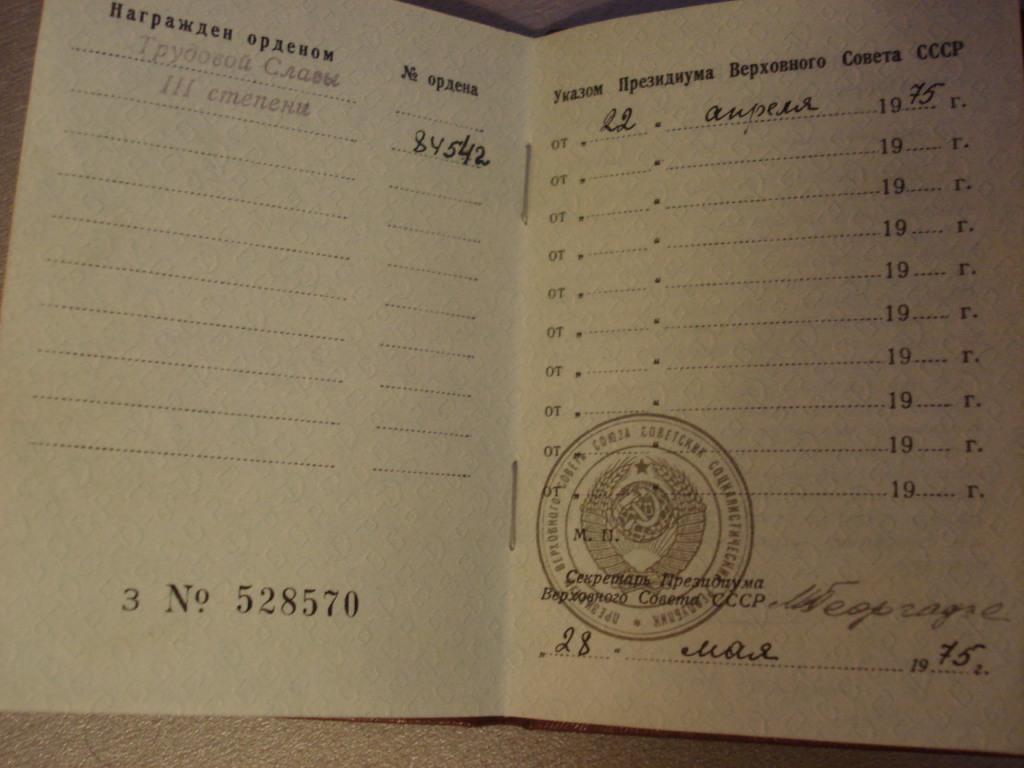 Награжден орденом
Трудовой Славы
III степени
№ ордена
84542
З № 528570
Указом Президиума Верховного Совета СССР
от „ 22 “ апреля 1975 г.
от „ “ 19 г.
от „ “ 19 г.
от „ “ 19 г.
от „ “ 19 г.
от „ “ 19 г.
от „ “ 19 г.
от „ “ 19 г.
от „ “ 19 г.
от „ “ 19 г.
ПРЕЗИДИУМ ВЕРХОВНОГО СОВЕТА СОЮЗА СОВЕТСКИХ СОЦИАЛИСТИЧЕСКИХ РЕСПУБЛИК
М. П.
Секретарь Президиума
Верховного Совета СССР МГеоргадзе
„ 28 “ мая 1975 г.